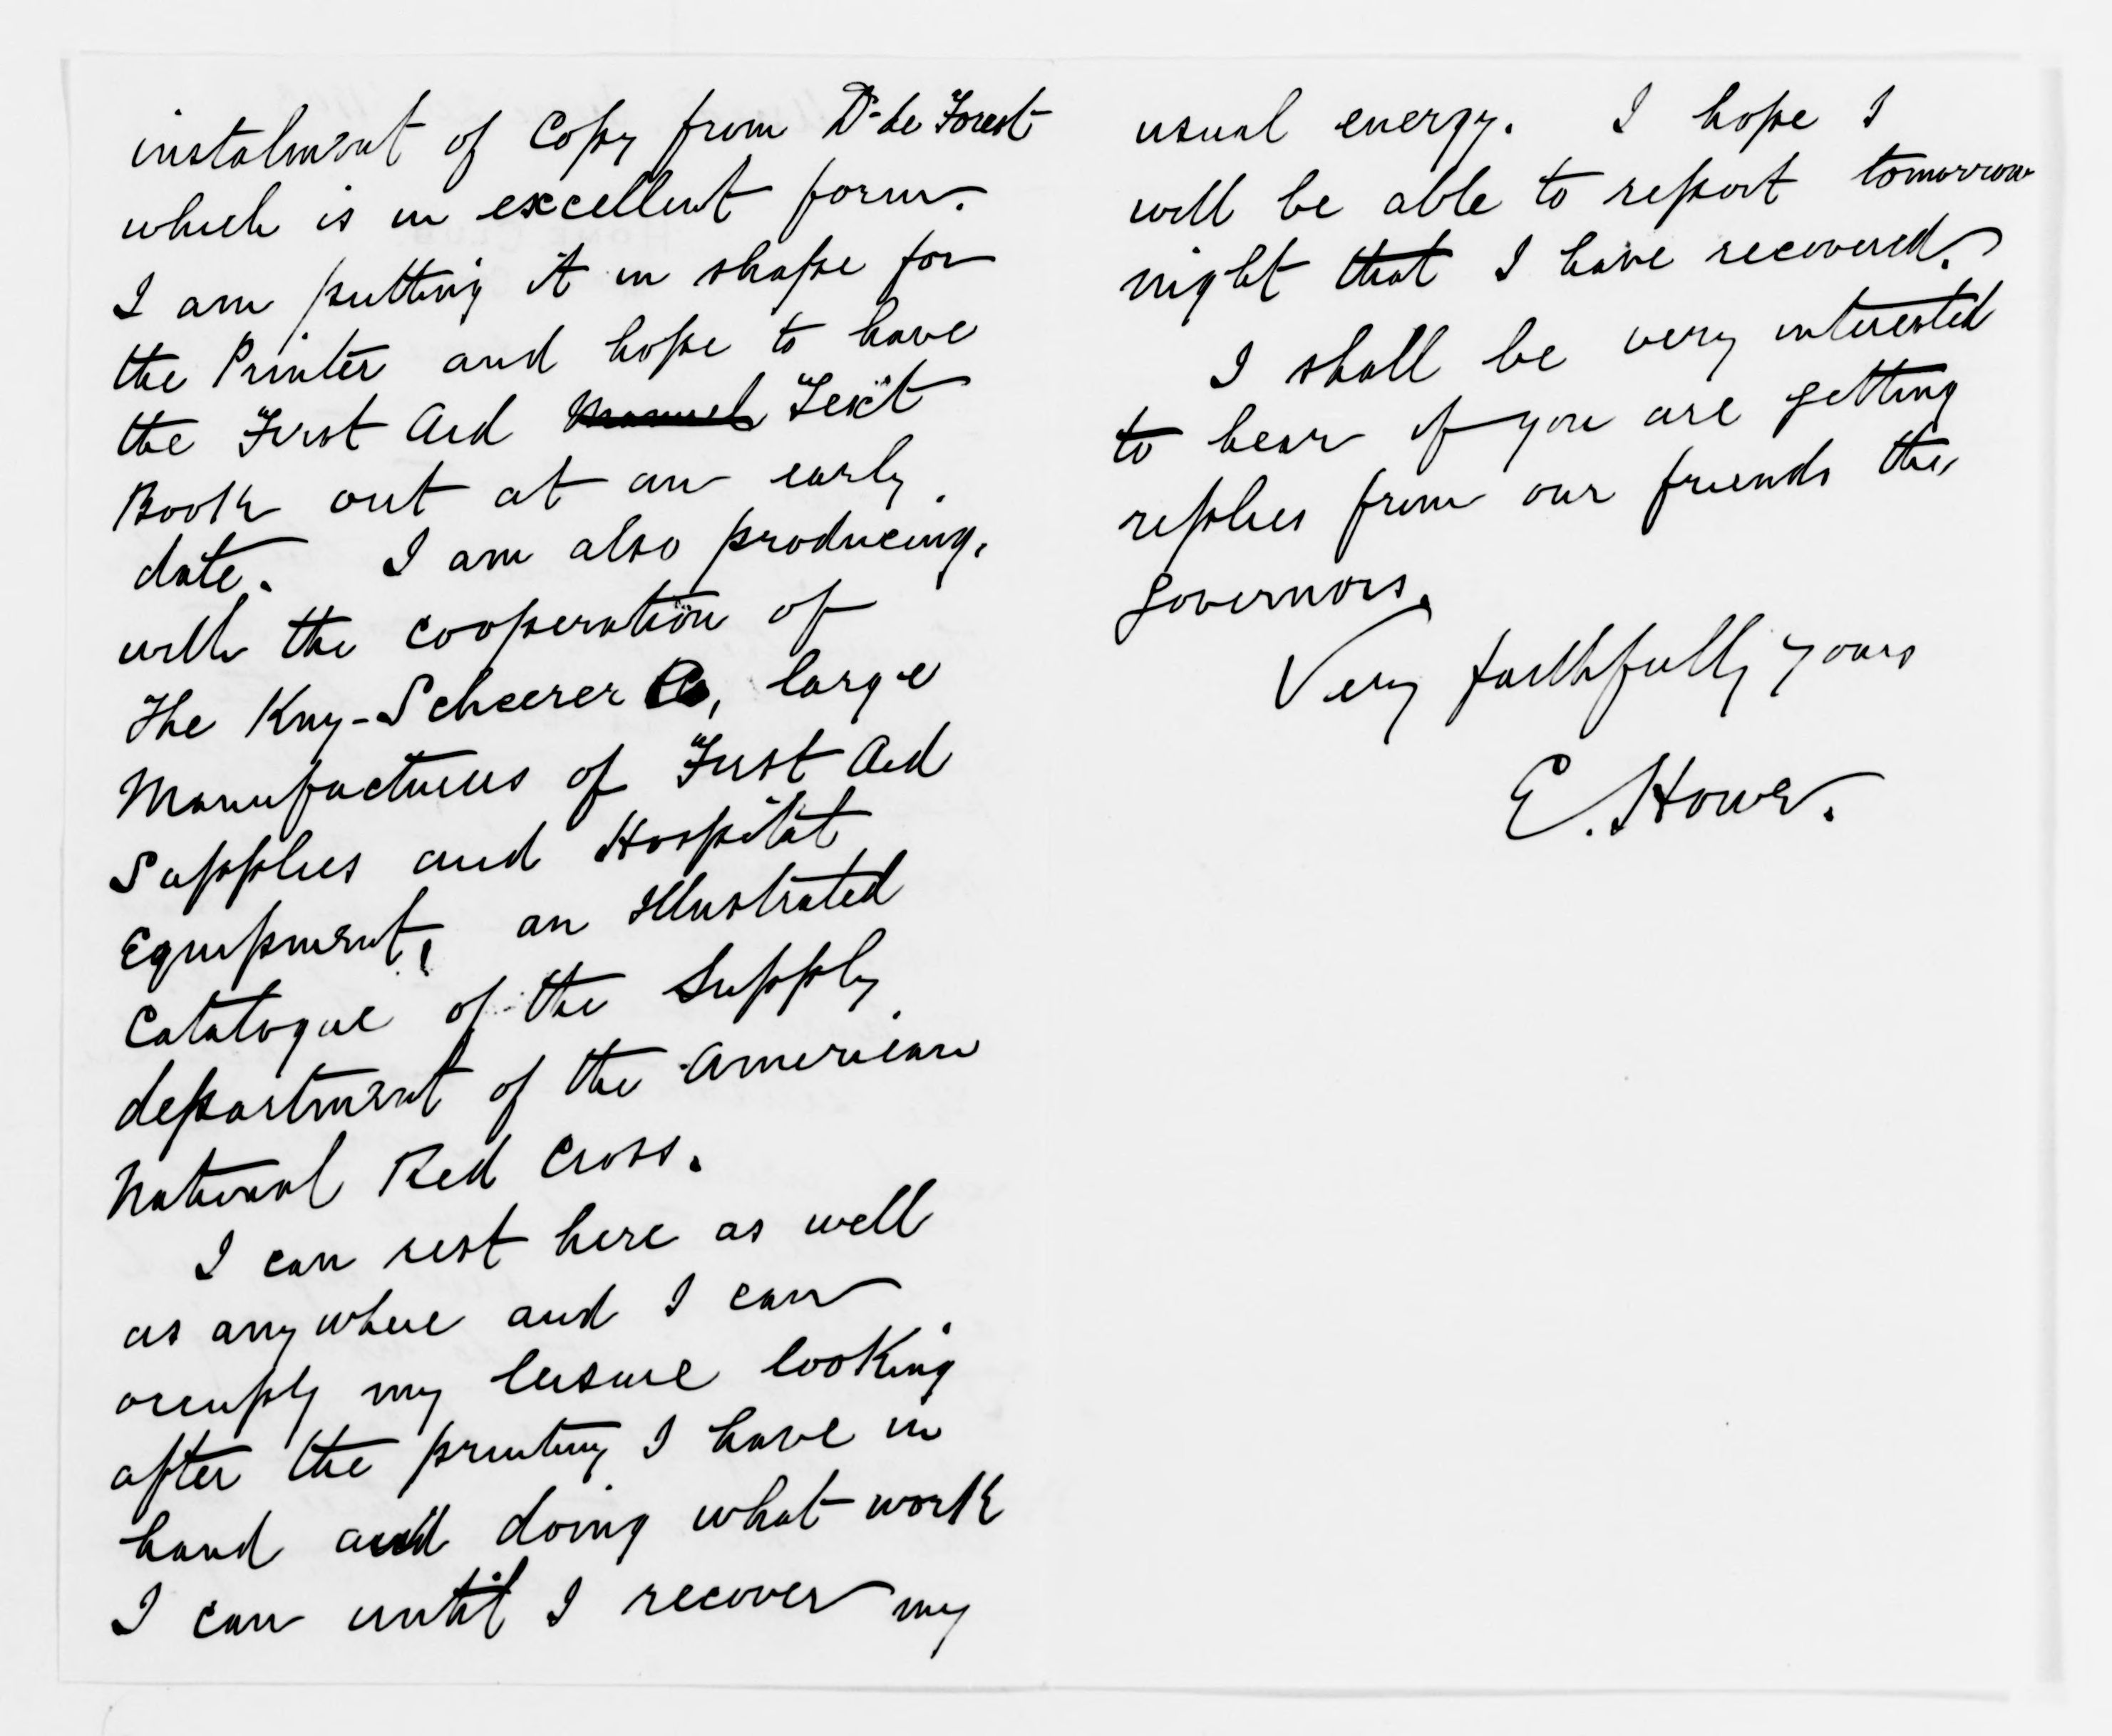 instalment of Copy from Dr de Forest
which is in excellent form.
I am putting it in shape for
the Printer and hope to have
the First Aid Manuel Text
Book out at an early
date. I am also producing,
with the cooperation of
The Kny-Scheerer Co, large
Manufacturers of First Aid
Supplies and Hospital
Equipment, an Illustrated
Catalogue of the Supply
department of the American
National Red Cross.
I can rest here as well
as anywhere and I can
occupy my leisure looking
after the printing I have in
hand and doing what work
I can until I recover my
usual energy. I hope I
will be able to report tomorrow
night that I have recovered.
I shall be very interested
to hear if you are getting
replies from our friends the
Governors.
Very faithfully yours
E. Howe.